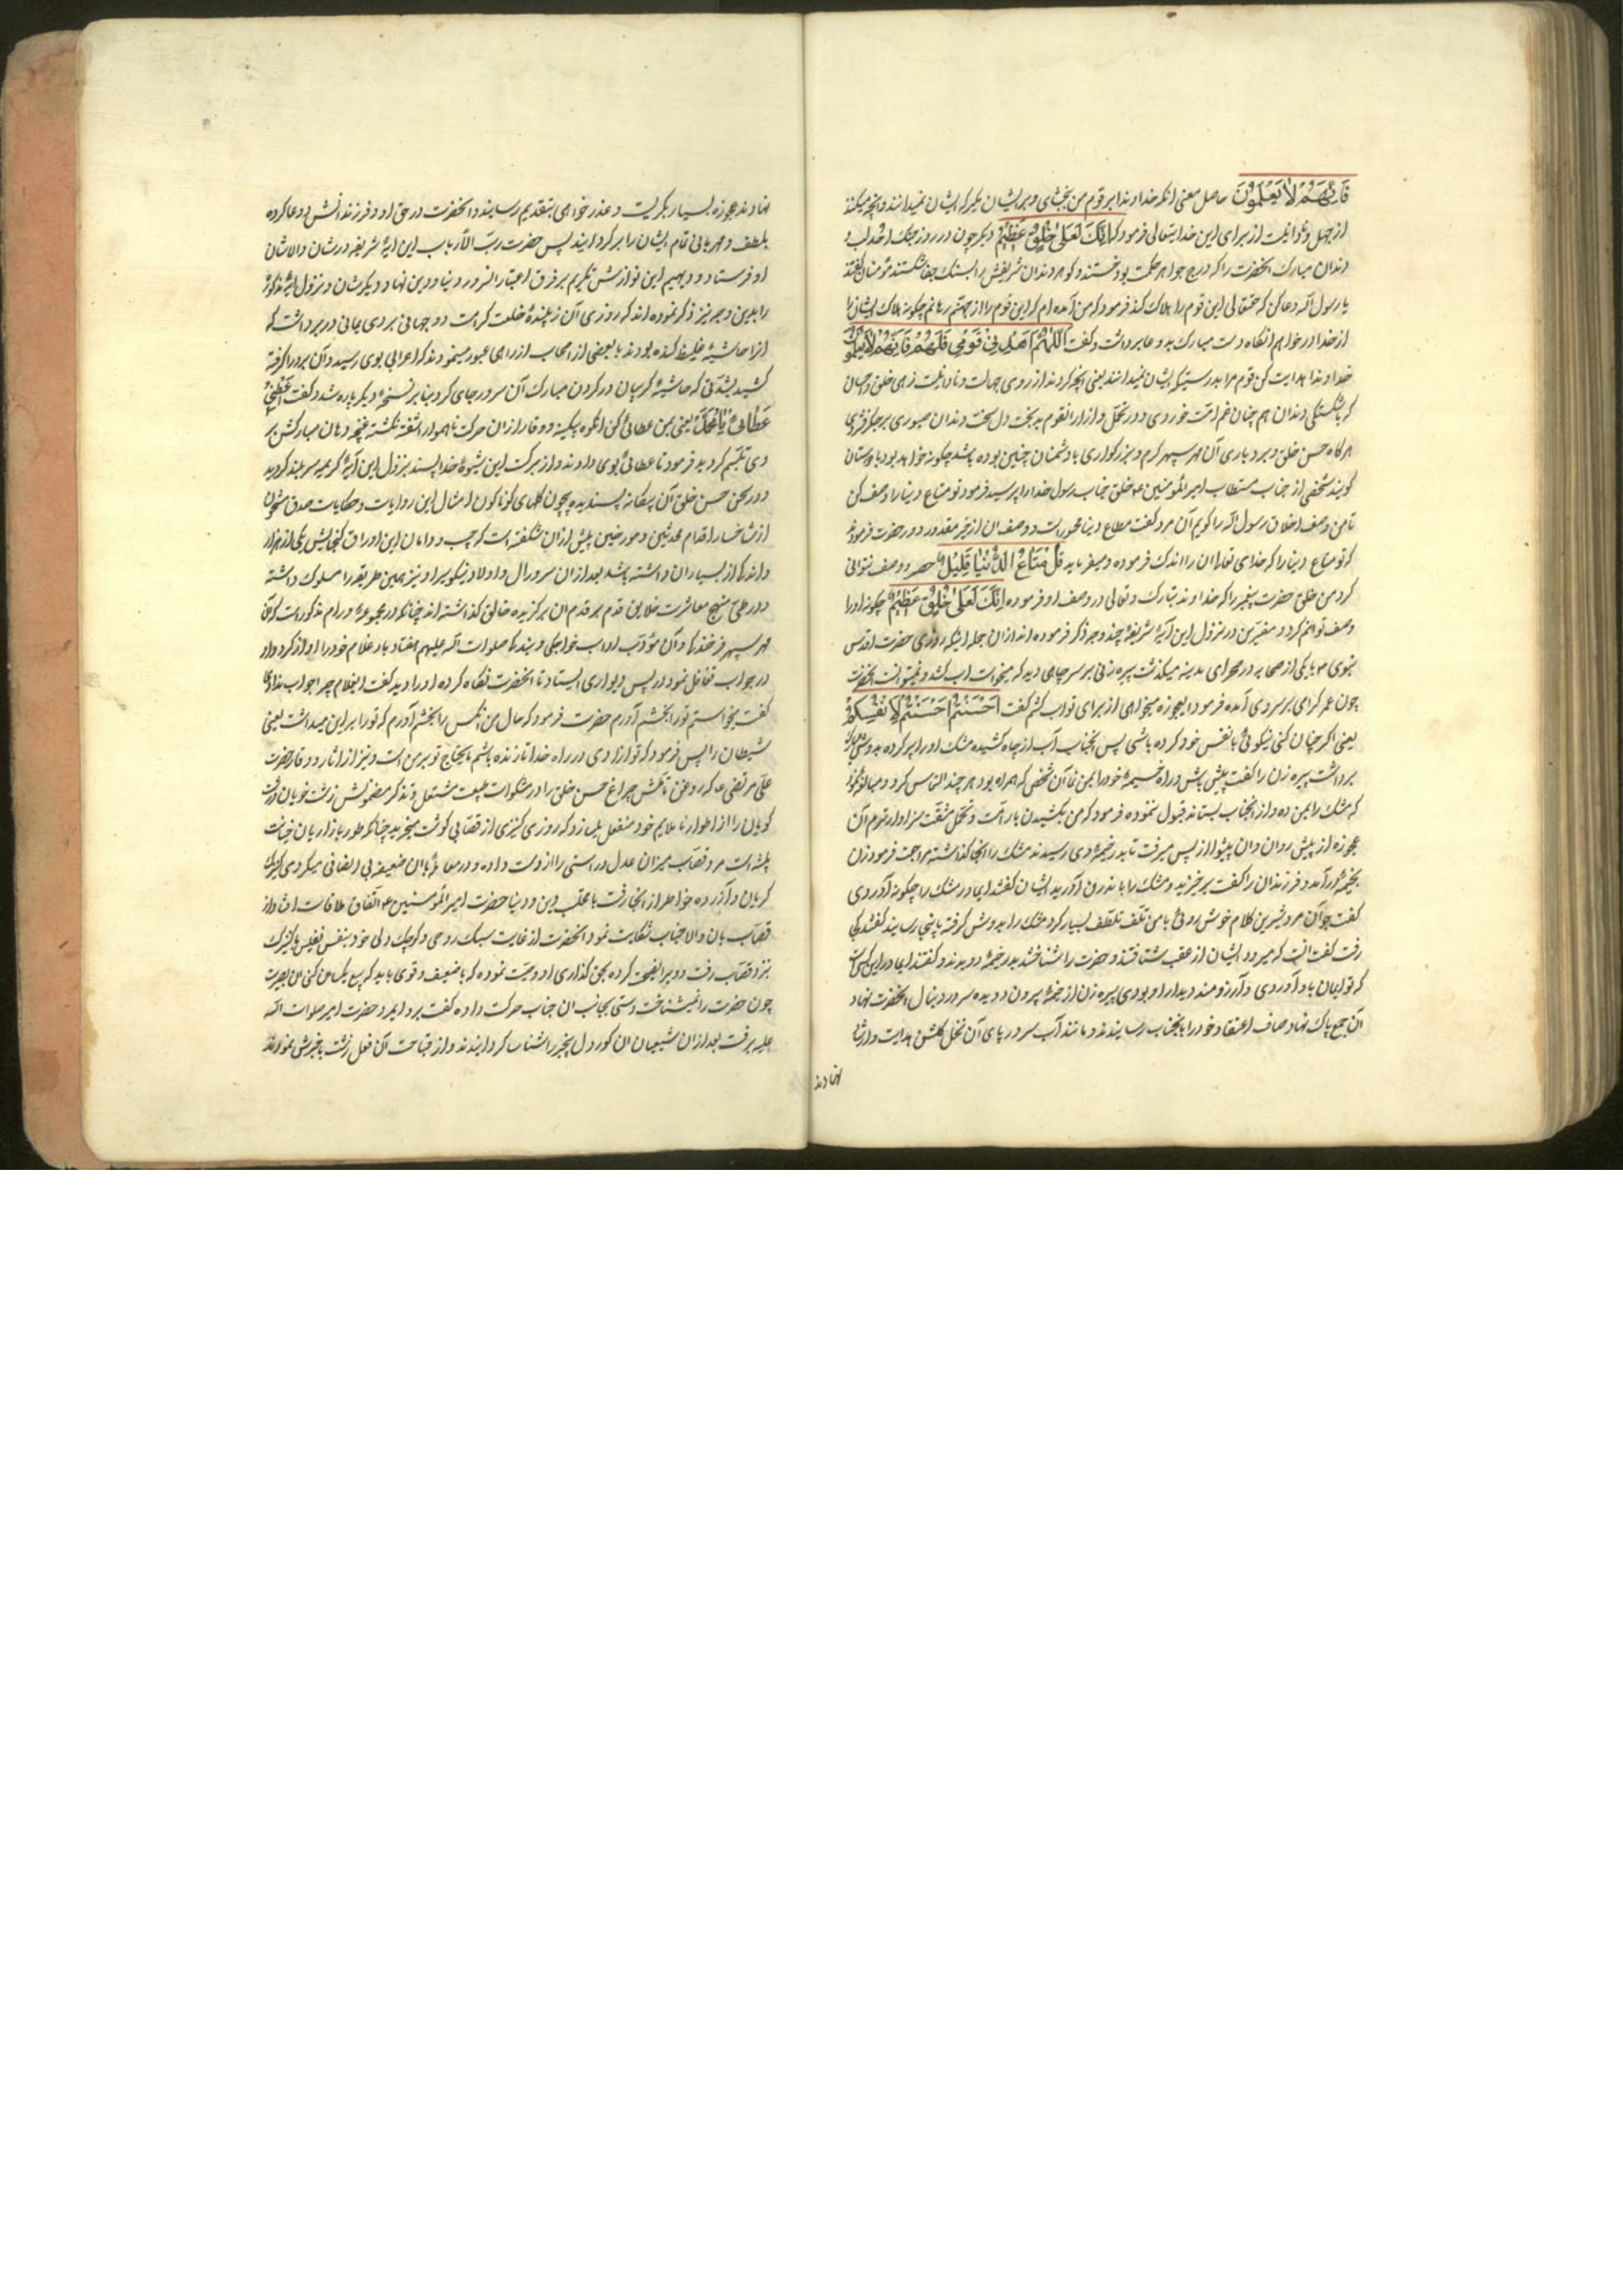 فَاِنَّهُمْ لا یَعْلَمُونَ حاصل معنی انکه خداوندا بر قوم من بخشای و بر ایشان مکیر که ایشان نمیدانند و انچه میکنند
از جهل و نادانیست از برای این خدایتعالی فرمود که اِنَّکَ لَعَلی خُلُقٍ عَظیمٍ دیکر چون در روز جنک احد لب و
دندان مبارک انحضرت را که درج جواهر حکمت بود خستند و کوهر دندان شریفش را بسنک جفا شکستند مؤمنان کفتند
یا رسول الله دعا کن که حقتعالی این قوم را هلاک کند فرمود که من آمده ام که این قوم را از جهنم رهانم چکونه هلاک ایشان را
از خدا در خواهم انکاه دست مبارک بدعا برداشت و کفت اَللّهُمَّ اهْدِ قَوْمی فَاِنَّهُمْ لا یَعْلَمُونَ
خداوندا هدایت کن قوم مرا بدرستیکه ایشان نمیدانند یعنی انچه کردند از روی جهالت و نادانیست زهی خلق و احسان
که با شکستکی دندان هم چنان غم امت خوردی و در تحمل و ازار انقوم بدبخت دل سخت دندان صبوری بر جکر فشردی
هرکاه حسن خلق و بردباری آن مهر سپهر کرم و بزرکواری با دشمنان چنین بوده باشد چکونه خواهد بود با دوستان
کویند شخصی از جناب مستطاب امیر المؤمنین ع خلق جناب رسول خدا را پرسید فرمود تو متاع دنیا را وصف کن
تا من وصف اخلاق رسول الله را کویم آن مرد کفت متاع دنیا محصور نیست و وصف ان از حیز مقدور دور حضرت فرمود
که تو متاع دنیا را که خدای تعالی ان را اندک فرموده و میفرماید قُلْ مَتاعُ الدُّنْیا قَلیلٌ حصر و وصف نتوانی
کرد من خلق حضرت پیغمبر را که خداوند تبارک و تعالی در وصف او فرموده اِنَّکَ لَعَلی خُلُقٍ عَظیمٍ چکونه او را
وصف توانم کرد و مفسرین در نزول این آیهٔ شریفه چند وجه ذکر فرموده اند از ان جمله اینکه روزی حضرت اقدس
نبوی ص با یکی از صحابه در صحرای مدینه میکذشت پیره زنی بر سر چاهی دید که میخواست اب کشد و نمیتوانست انحضرت
چون عمر کرامی بر سر وی آمده فرمود ایعجوزه میخواهی از برای تو اب کشم کفت اَحْسَنْتُمْ اَحْسَنْتُمْ لِاَنْفُسِکُمْ
یعنی اکر چنان کنی نیکوئی با نفس خود کرده باشی پس انجناب آب از چاه کشیده مشک او را پر کرده بدوش مبارک
برداشت پیره زن را کفت پیش باش و راه خیمهٔ خود را بمن نما آن شخص که همراه بود هر چند التماس کرد و مبالغه نمود
که مشک را بمن ده و از انجناب بستاند قبول ننموده فرمود که من بکشیدن بار امت و تحمل مشقت سزاوارترم آن
عجوزه از پیش روان و ان پیشوا از پس میرفت تا بدر خیمهٔ وی رسیدند مشک را انجا کذاشته مراجعت فرمود زن
بخیمه درآمد و فرزندان را کفت برخیزید و مشک را باندرون آورید ایشان کفتند ای مادر مشک را چکونه آوردی
کفت جوان مرد شیرین کلام خوش روئی با من تلطف بسیار کرد مشک را بدوش کرفته باینجا رسانید کفتند کجا
رفت کفت انست که میرود ایشان از عقب شتافتند و حضرت را شناختند بدر خیمه دویدند و کفتند ایمادر این کسیست
که تو ایمان باو آوردی و آرزومند دیدار او بودی پیره زن از خیمه بیرون دویده سر در دنبال انحضرت نهاد
آن جمع پاک نهاد صاف اعتقاد خود را بانجناب رسانیدند و مانند آب سر در پای آن نخل کلشن هدایت و ارشاد
نهادند
نهادند عجوزه بسیار بکریست و عذر خواهی بتقدیم رسانید و انحضرت در حق او و فرزندانش دعا کرده
بلطف و مهربانی تمام ایشان را برکردانید پس حضرت رب الارباب این ایهٔ شریفه در شان والاشان
او فرستاد و دیهیم این نوازش تکریم بر فرق اعتبار السرور دنیا و دین نهاد و دیکر شان و نزول ایهٔ مذکوره
را بدین وجه نیز ذکر نموده اند که روزی آن زیبندهٔ خلعت کرامت دو جهانی بردی یمانی در بر داشت که
انرا حاشیهٔ غلیظ کنده بود با بعضی از اصحاب از راهی عبور مینمودند که اعرابی بوی رسید و آن برد را کرفته
کشید بشدتی که حاشیهٔ کریبان در کردن مبارک آن سرور جای کرد بنا بر نسخهٔ دیکر پاره شد و کفت اَعْطِنی
عَطائی یا مُحَمَّدُ یعنی بمن عطائی کن انکوه سکینه و وقار از ان حرکت ناهموار اشفته نکشته غنچه دهان مبارکش بر
وی تبسم کردید فرمود تا عطائی بوی دادند و از برکت این شیوهٔ خدا پسند بنزول این آیهٔ کریمه سربلند کردید
و در صحن حسن خلق آن یکانه پسندیده چون کلهای کوناکون امثال این روایات و حکایات صدق مشحون
از شاخسار اقلام محدثین و مورخین بیش از ان شکفته است که جیب و دامان این اوراق کنجایش یکی از هزار
و اندکی از بسیار ان داشته باشد بعد از ان سرور ال و اولاد نیکو سیر او نیز همین طریقه را مسلوک داشته
و در طی منهج معاشرت خلایق قدم بر قدم ان برکزیده خالق کذاشته اند چنانکه در مجموعهٔ ورام مذکور است که آن
مهر سپهر فرخندکی و آن مؤدب اداب خواجکی و بندکی صلوات الله علیهم هفتاد بار غلام خود را اواز کرد و او
در جواب تغافل نمود در پس دیواری ایستاد تا انحضرت نکاه کرده او را دید کفت ایغلام چرا جواب ندادی
کفت میخواستم تو را بخشم آورم حضرت فرمود که حال من انکس را بخشم آورم که تو را بر این میداشت یعنی
شیطان را پس فرمود که تو ازادی در راه خدا تا زنده باشم مایحتاج تو بر من است و نیز از اثار و وقار حضرت
علی مرتضی ع که روغن تاملش چراغ حسن خلق را در مشکوات طبیعت مشتعل و تذکر مضمونش زشت خویان درشت
کویان را از اطوار ناملایم خود منفعل میسازد که روزی کنیزی از قصابی کوشت میخرید چنانکه طور بازاریان خیانت
پیشه است مرد قصاب میزان عدل و راستی را از دست داده و در معامله بان ضعیفه بی انصافی میکرد کنیزک
کریان و آزرده خاطر از انجا رفت با قطب دین و دنیا حضرت امیر المؤمنین ع اتفاق ملاقات افتاد از
قصاب بان والا جناب شکایت نمود انحضرت از غایت سبک روحی و کوچک دلی خود بنفس نفیس با کنیزک
بنزد قصاب رفت و ویرا نصیحت کرده بحق کذاری او وصیت نموده که با ضعیف و قوی باید که بیع یکسان کنی ان بی بصیرت
چون حضرت را نمیشناخت دستی بجانب ان جناب حرکت داده کفت برو ایمرد حضرت امیر صلوات الله
علیه برفت بعد از ان شیعیان ان کوردل بیخبر را شناسا کردانیدند و از قباحت آن فعل زشت باخبرش نمودند